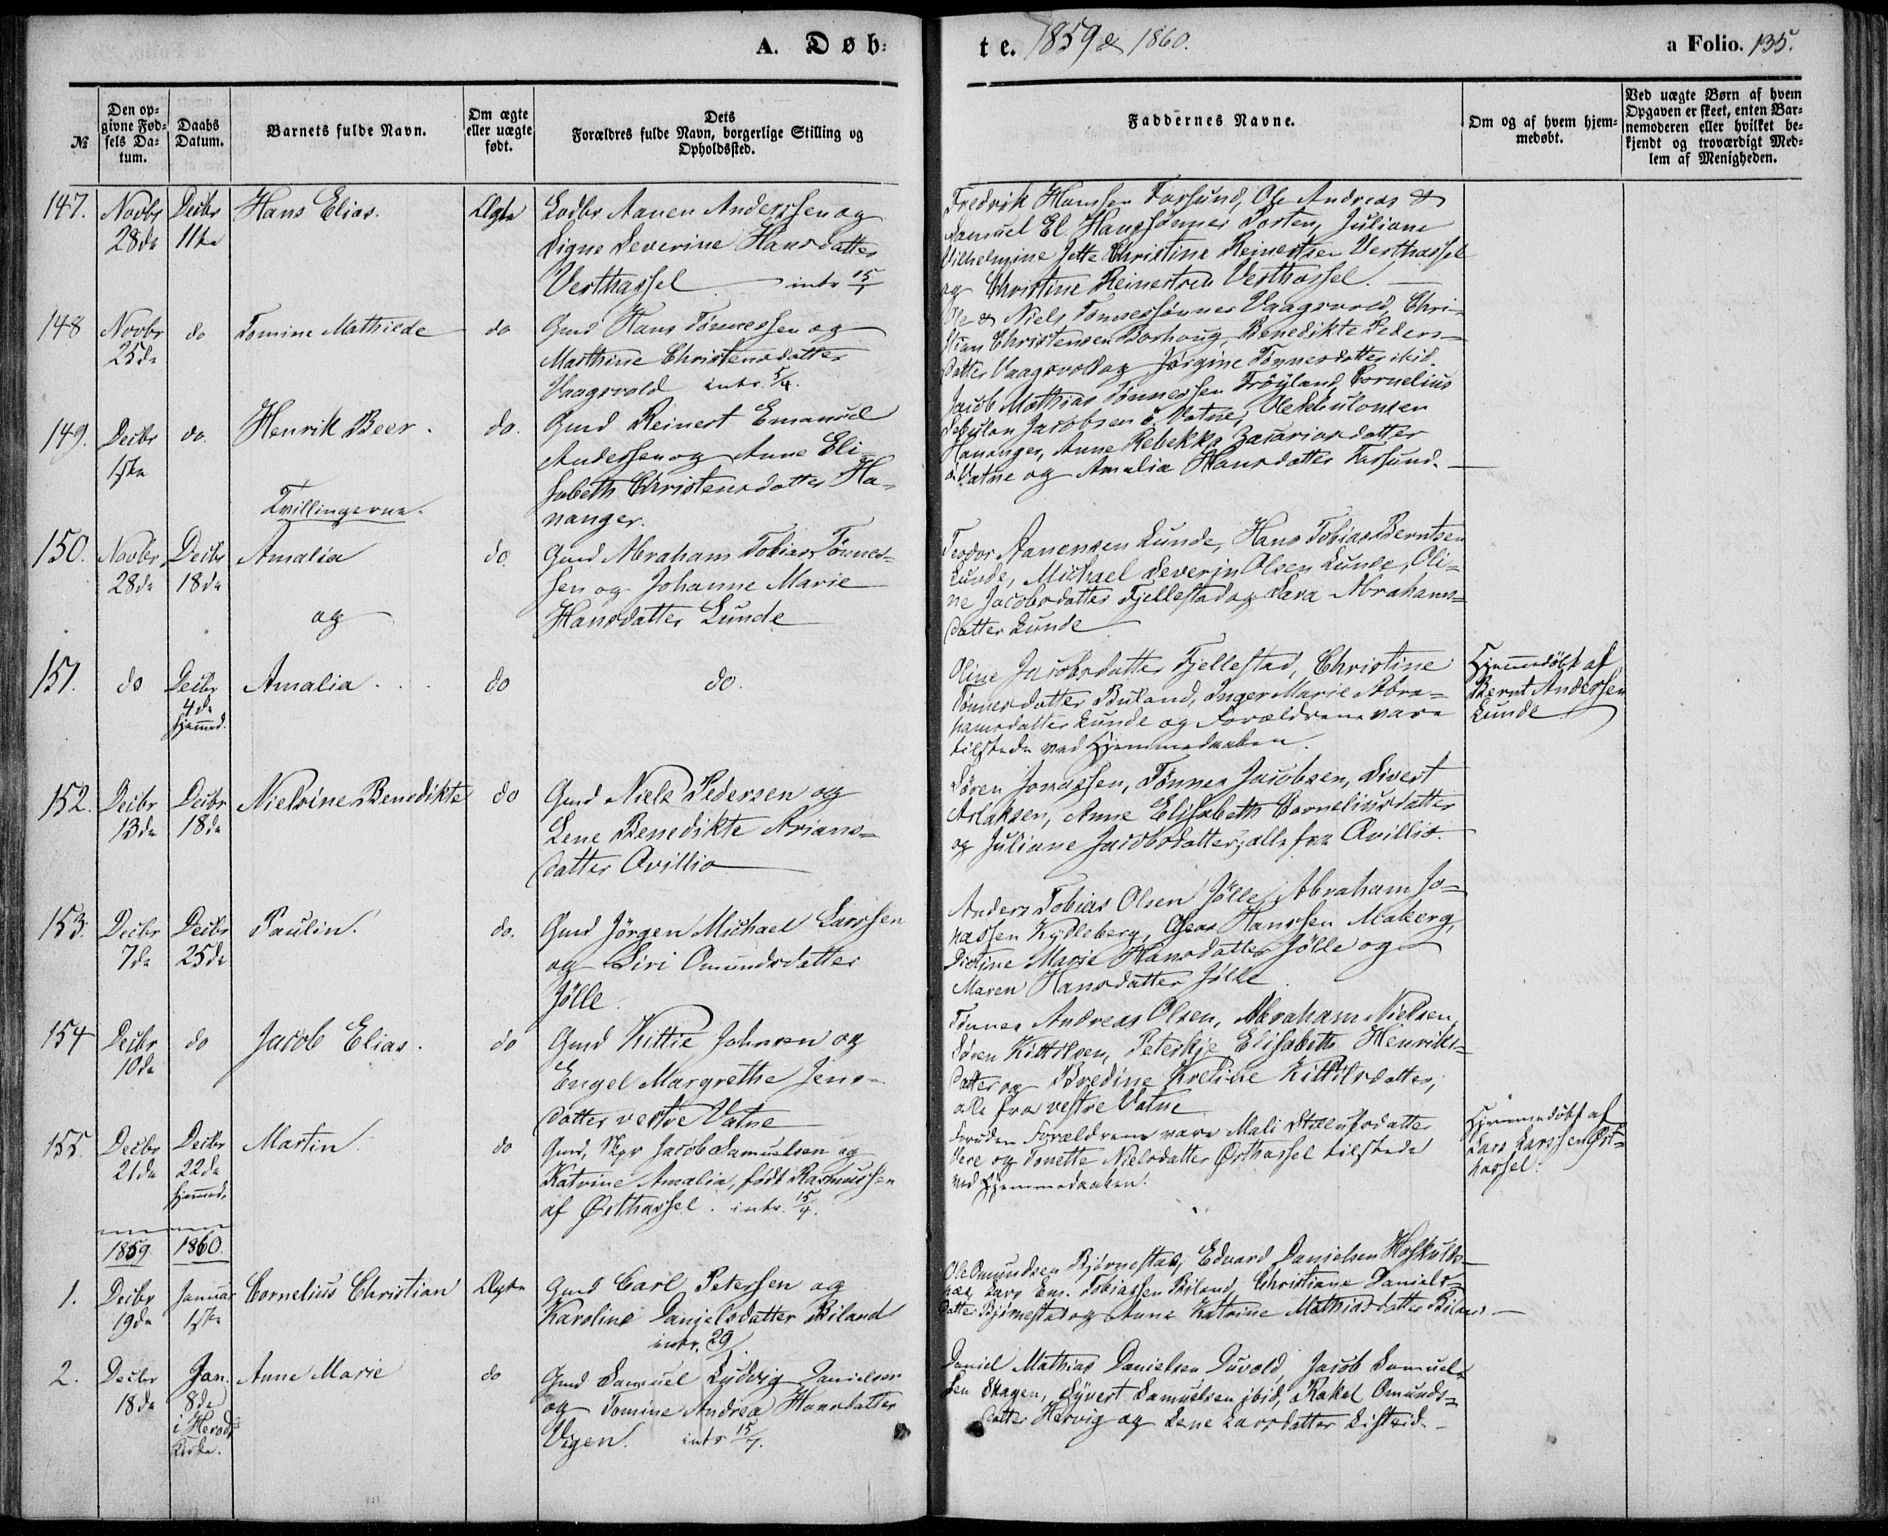 A. Døb-
te. 1859 & 1860.
a Folio. 135.
№
Den op-
givne Fød-
sels Da-
tum.
Daabs
Datum.
Barnets fulde Navn.
Om ægte
eller uægte
født.
Dets
Forældres fulde Navn, borgerlige Stilling og
Opholdssted.
Faddernes Navne.
Om og af hvem hjem-
medøbt.
Ved uægte Børn af hvem
Opgaven er skeet, enten Bar-
nemoderen eller hvilket be-
kjendt og troværdigt Med-
lem af Menigheden.
147. Novbr
28de
Decbr
11te
Hans Elias.
Ægte
Lodbr Aanen Anderssen og
Signe Severine Hansdatter
Vesthassel intr 15/1
Fredrik Hanssen Farsund, Ole Andreas &
Samuel El. Hanssønner Torsten, Juliane
Vilhelmine Jette Christine Reinertsen Vesthassel
og Christine Reinertsen Vesthassel.
148 Novbr
25de
do
Tomine Mathilde
do
Gmd Hans Tønnessen og
Marthine Christensdatter
Vaagsvold intr. 5/4.
Ole & Niels Tønnessønner Vaagsvold, Chri-
stian Christensen Borhoug, Benedikte Peders-
datter Vaagsvold og Jørgine Tønnesdatter ibid.
149. Decbr
1ste
do.
Henrik Beer.
do.
Gmd Reinert Emanuel
Anderssen og Anne Eli-
sabeth Christensdatter Ha-
nanger.
Jacob Mathias Tønnessen Frøyland, Cornelius
Jacobsen ø. Vatne,
Hananger, Anne Rebekka Zacariasdatter
ø. Vatne og Amalia Hansdatter Farsund.
Tvillingerne.
150. Novbr
28de
Decbr
18de
Amalia
og
do.
Gmd Abraham Tobias Tønnes-
sen og Johanne Marie
Hansdatter Lunde
Teodor Aanensen Lunde, Hans Tobias Berntsen
Lunde, Michael Severin Olsen Lunde, Oli-
ne Jacobsdatter Fjellestad og Sara Abrahams-
datter Lunde
151. do
Decbr
4de
hjemmed.
Amalia.
do
do.
Oline Jacobsdatter Fjellestad, Christine
Tønnesdatter Buland, Inger Marie Abra-
hamsdatter Lunde og Forældrene vare
tilstede ved Hjemmedaaben.
Hjemmedøbt af
Bernt Andersen
Lunde
152. Decbr
13de
Decbr
18de
Nielsine Benedikte
do
Gmd Niels Pedersen og
Lene Benedikte Arians-
datter Qvillio
Søren Jonassen, Tønnes Jacobsen, Sivert
Aslaksen, Anne Elisabeth Corneliusdatter
og Juliane Jacobsdatter; alle fra Qvillio.
153. Decbr
7de
Decbr
25de
Paulin.
do.
Gmd Jørgen Michael Larssen
og Siri Omundsdatter
Jølle.
Anders Tobias Olsen Jølle, Abraham Jo-
nassen Kydleberg, Hanssen Maberg,
Marie Hansdatter Jølle og
Maren Hansdatter Jølle.
154 Decbr
10de
do
Jacob Elias.
do
Gmd Kittil Johnsen og
Engel Margrethe Jens-
datter vestre Vatne
Tønnes Andreas Olsen, Abraham Nielsen,
Søren Kittilsen, Peterkje Elisabeth Henriks-
datter og Bredine Kittilsdatter,
alle fra vestre Vatne
155. Decbr
21de
Decbr
22de
hjemmed.
Martin.
do
Gmd, Skpr Jacob Samuelsen og
Katrine Amalia, født Rasmussen
af Østhassel. intr. 15/4.
Foruden Forældrene vare Mali
Vere og Tonette Nielsdatter Østhassel tilstede
ved Hjemmedaaben.
Hjemmedøbt af
Lars Larssen Øst-
hassel.
1859. 1860.
1. Decbr
19de
Januar
1ste
Cornelius Christian
Ægte
Gmd Carl Petersen og
Karoline Danjelsdatter Biland
intr. 29/
Ole Omundsen Bjørnestad, Edvard Danielsen
Lars Em. Tobiassen Biland, Christiane Daniels-
datter Bjørnestad og Anne Katrine Mathiasdatter Biland
2. Decbr
18de
Jan.
8de
i Herads
Kirke.
Anne Marie
do
Gmd Samuel Ludvig Danielsen
og Tomine Andrea Hansdatter
Vigen. intr 15/7.
Daniel Mathias Danielsen Duvold, Jacob Samuel-
sen Skagen, Syvert Samuelsen ibid, Rakel Omunds-
datter Hervig og Lene Larsdatter